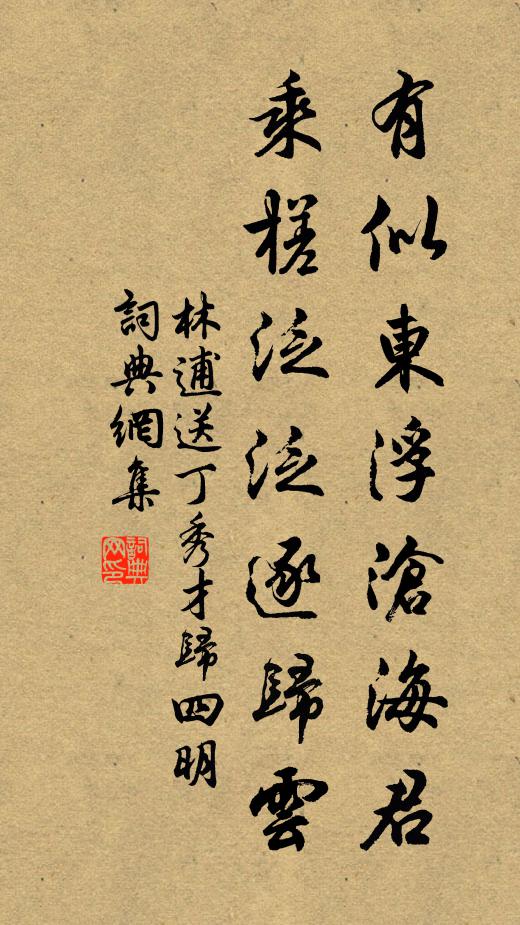 有似東浮滄海君
乘槎泛泛逐歸雲
林逋送丁秀才歸四明
詞典網集
詞典网印